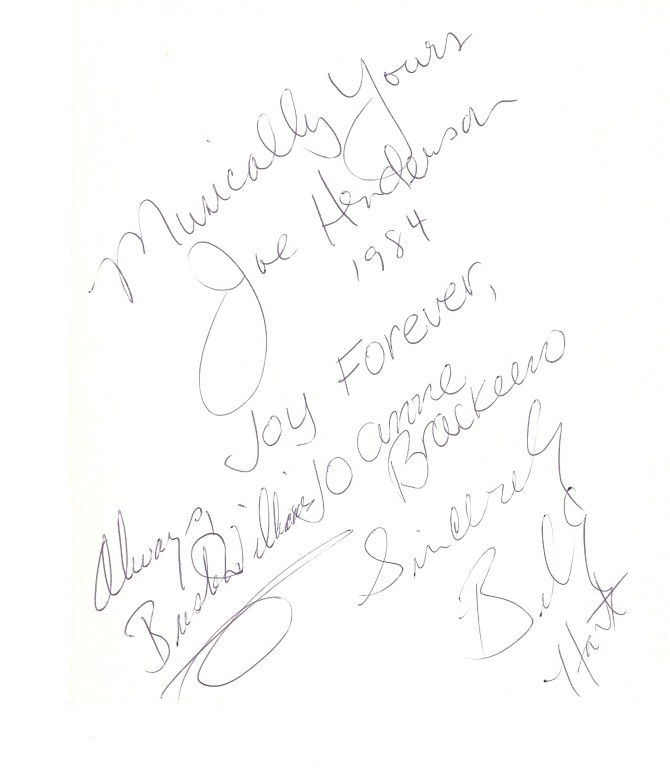 Musically Yours
Joe Henderson
1984
Joy Forever,
Joanne
Brackeen
Always
Buster Williams
Sincerely
Billy
Hart